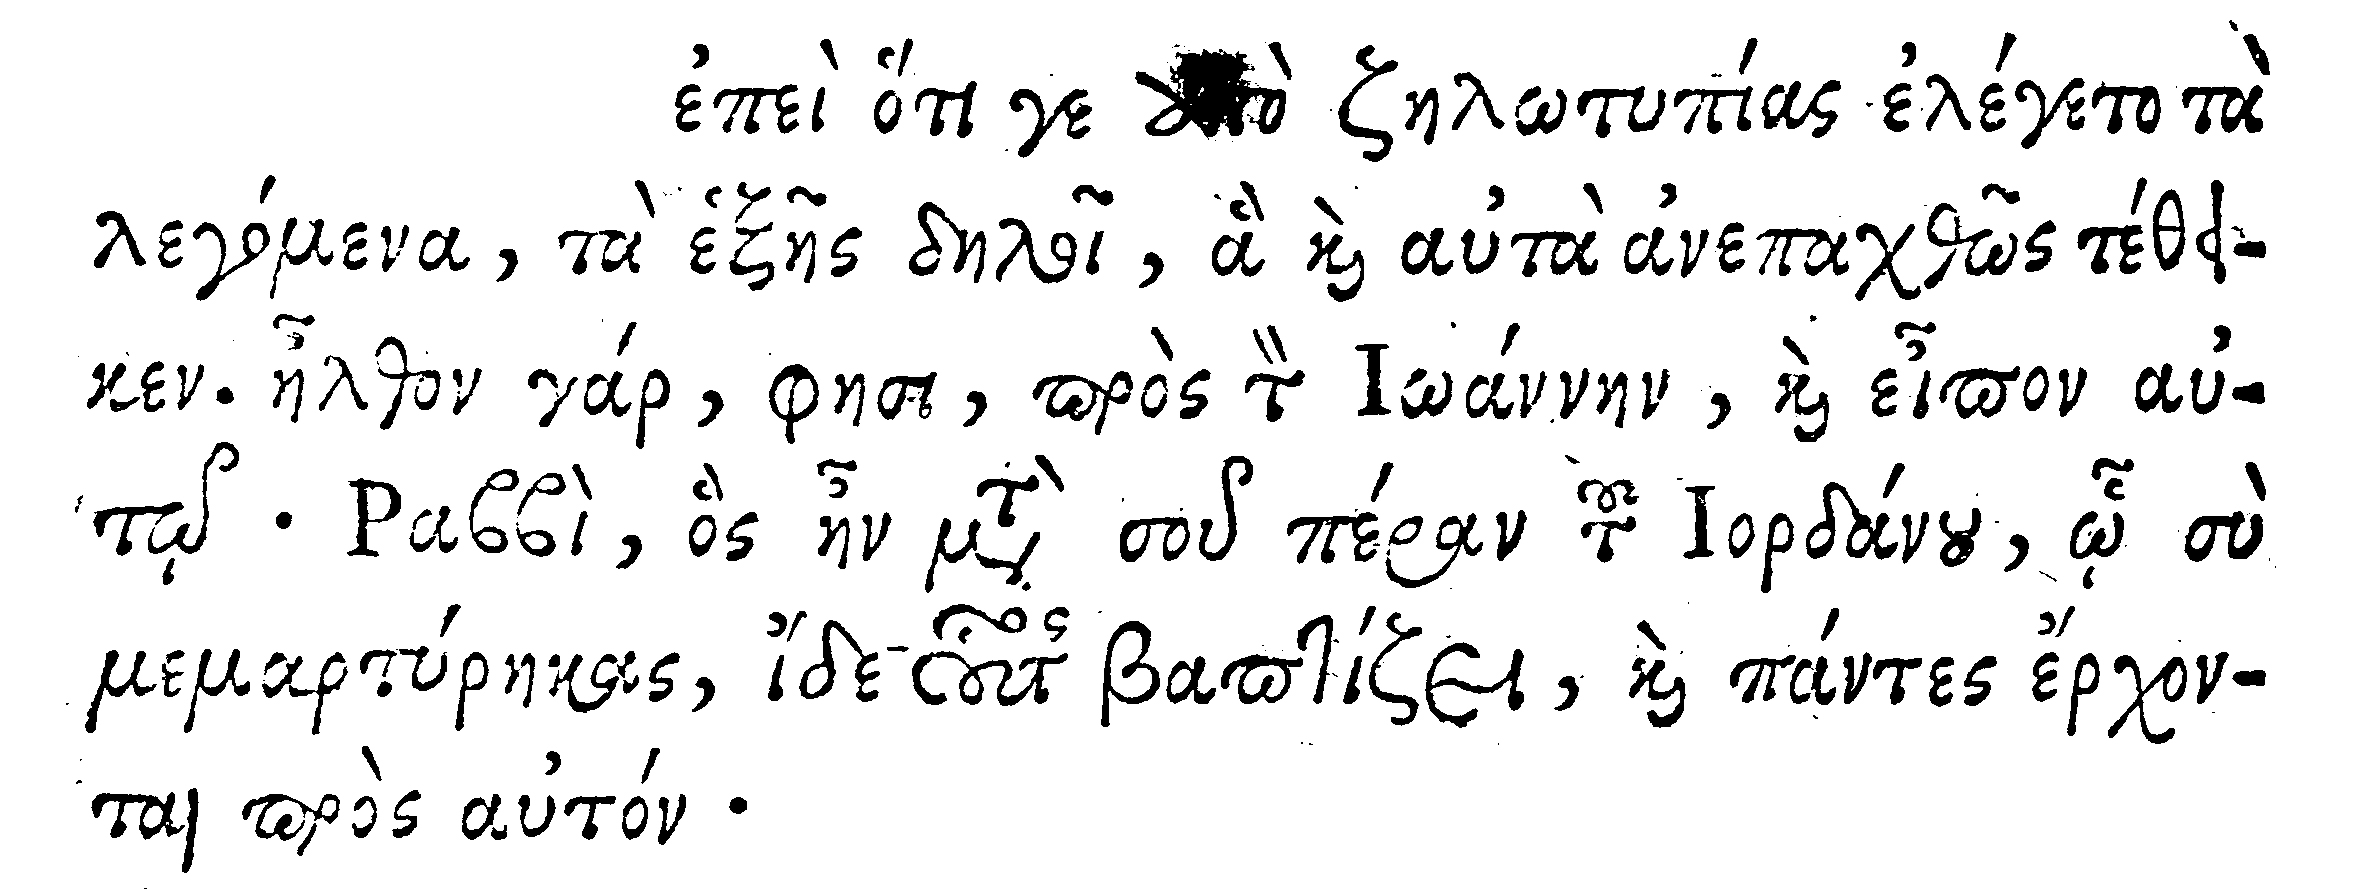 ἐπεὶ ὅτι γε ἀπὸ ζηλωτυπίας ἐλέγετο τὰ
λεγόμενα, τὰ ἑξῆς δηλοῖ, ἃ καὶ αὐτὰ ἀνεπαχθῶς τέθει-
κεν. ἦλθον γάρ, φησι, πρὸς τὸν Ιωάννην, καὶ εἶπον αὐ-
τῷ. Ραββὶ, ὃς ἦν μετὰ σοῦ πέραν τοῦ Ιορδάνου, ᾧ σὺ
μεμαρτύρηκας, ἴδε οὗτος βαπτίζει, καὶ πάντες ἔρχον-
ται πρὸς αὐτόν.